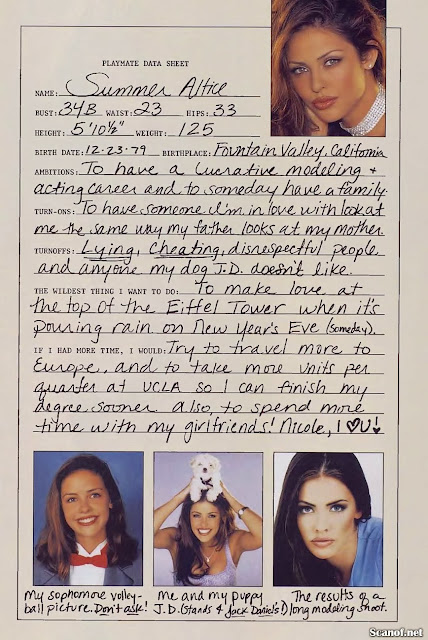 PLAYMATE DATA SHEET
NAME: Summer Altice
BUST: 34B WAIST: 23 HIPS: 33
HEIGHT: 5'10½" WEIGHT: 125
BIRTH DATE: 12·23·79 BIRTHPLACE: Fountain Valley, California
AMBITIONS: To have a lucrative modeling +
acting career and to someday have a family.
TURN-ONS: To have someone I'm in love with look at
me the same way my father looks at my mother.
TURNOFFS: Lying, Cheating, disrespectful people
and anyone my dog J.D. doesn't like.
THE WILDEST THING I WANT TO DO: To make love at
the top of the Eiffel Tower when it's
pouring rain on New Year's Eve (someday).
IF I HAD MORE TIME, I WOULD: Try to travel more to
Europe, and to take more units per
quarter at UCLA so I can finish my
degree sooner. Also, to spend more
time with my girlfriends! Nicole, I ♡ U!
My sophomore volley-
ball picture. Don't ask!
Me and my puppy
J.D. (Stands 4 Jack Daniels!)
The results of a
long modeling shoot.
Scanof.net